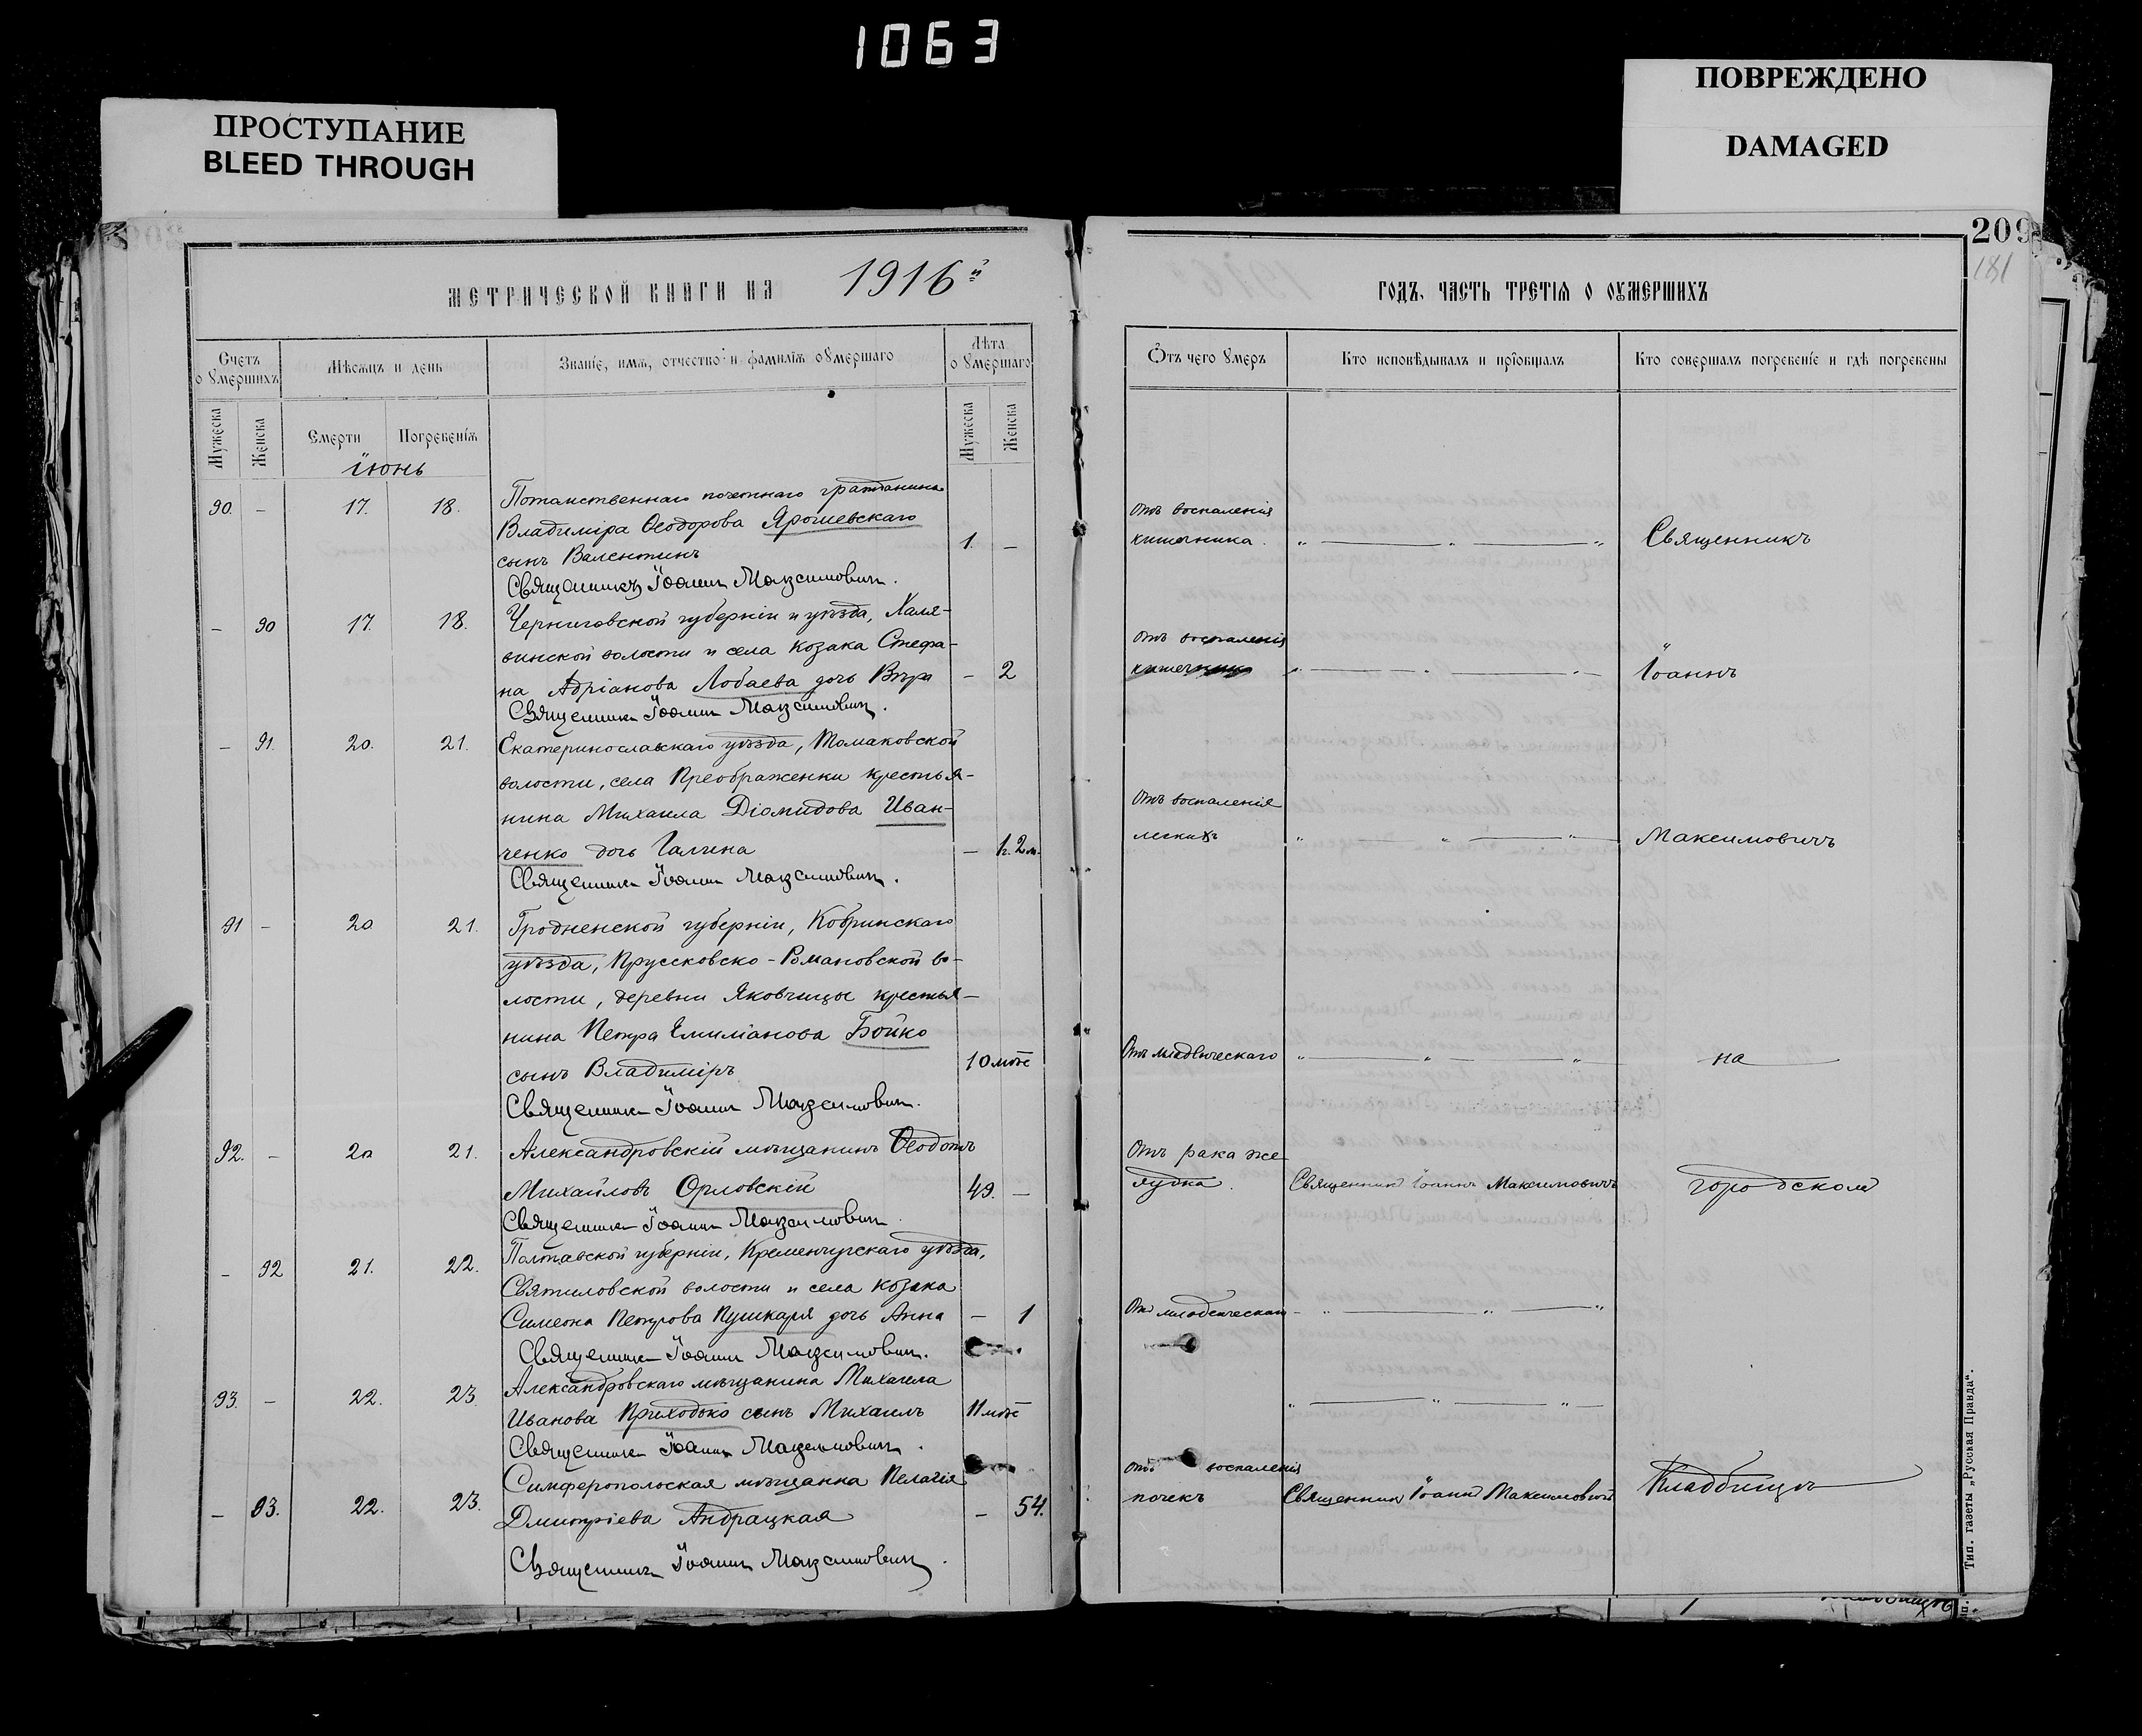 1063
ПРОСТУПАНИЕ
BLEED THROUGH
ПОВРЕЖДЕНО
DAMAGED
209
181
МЕТРИЧЕСКОЙ КНИГИ НА 1916й
Счетъ оумершихъ
Мѣсяцъ и день
Званіе, имя, отчество и фамилія оумершаго
Лѣта оумершаго
Мужеска
Женска
Смерти
Погребенія
Мужеска
Женска
Іюнь
90. – 17. 18. Потомственнаго почетнаго гражданина
Владиміра Ѳеодорова Ярошевскаго
сынъ Валентинъ 1. –
Священникъ Іоаннъ Максимовичъ.
– 90 17. 18. Черниговской губерніи и уѣзда, Халя-
винской волости и села козака Стефа-
на Адріанова Лобаева дочь Вѣра – 2
Священникъ Іоаннъ Максимовичъ.
– 91. 20. 21. Екатеринославскаго уѣзда, Томаковской
волости, села Преображенки крестья-
нина Михаила Діомидова Иван-
ченко дочь Галина – 1г. 2м.
Священникъ Іоаннъ Максимовичъ.
91 – 20 21. Гродненской губерніи, Кобринскаго
уѣзда, Прусковско-Романовской во-
лости, деревни Яковчицы крестья-
нина Петра Емиліанова Бойко
сынъ Владиміръ 10 мѣс
Священникъ Іоаннъ Максимовичъ.
92. – 20 21. Александровскій мѣщанинъ Ѳеодотъ
Михайловъ Орловскій 49. –
Священникъ Іоаннъ Максимовичъ.
– 92 21. 22. Полтавской губерніи, Кременчугскаго уѣзда,
Святиловской волости и села козака
Симеона Петрова Пушкаря дочь Анна – 1
Священникъ Іоаннъ Максимовичъ.
93. – 22. 23. Александровскаго мѣщанина Михаила
Иванова Приходько сынъ Михаилъ 11 мѣс
Священникъ Іоаннъ Максимовичъ.
Симферопольская мѣщанка Пелагія
– 93. 22. 23. Дмитріева Андрацкая – 54.
Священникъ Іоаннъ Максимовичъ.
ГОДЪ, ЧАСТЬ ТРЕТІЯ О ОУМЕРШИХЪ
Ѿтъ чего умеръ
Кто исповѣдывалъ и пріобщалъ
Кто совершалъ погребеніе и гдѣ погребены
Отъ воспаленія
кишечника. „ — „ — „ Священникъ
Отъ воспаленія
„ — „ — „ Іоаннъ
Отъ воспаленія
легкихъ „ „ — „ — Максимовичъ
Отъ младенческаго „ — „ — „ на
Отъ рака же-
лудка. Священникъ Іоаннъ Максимовичъ городскомъ
Отъ младенческаго – „ — „ — „
„ — „ — „ —
Отъ воспаленія
почекъ Священникъ Іоаннъ Максимовичъ Кладбищѣ
Тип. газеты „Русская Правда“.